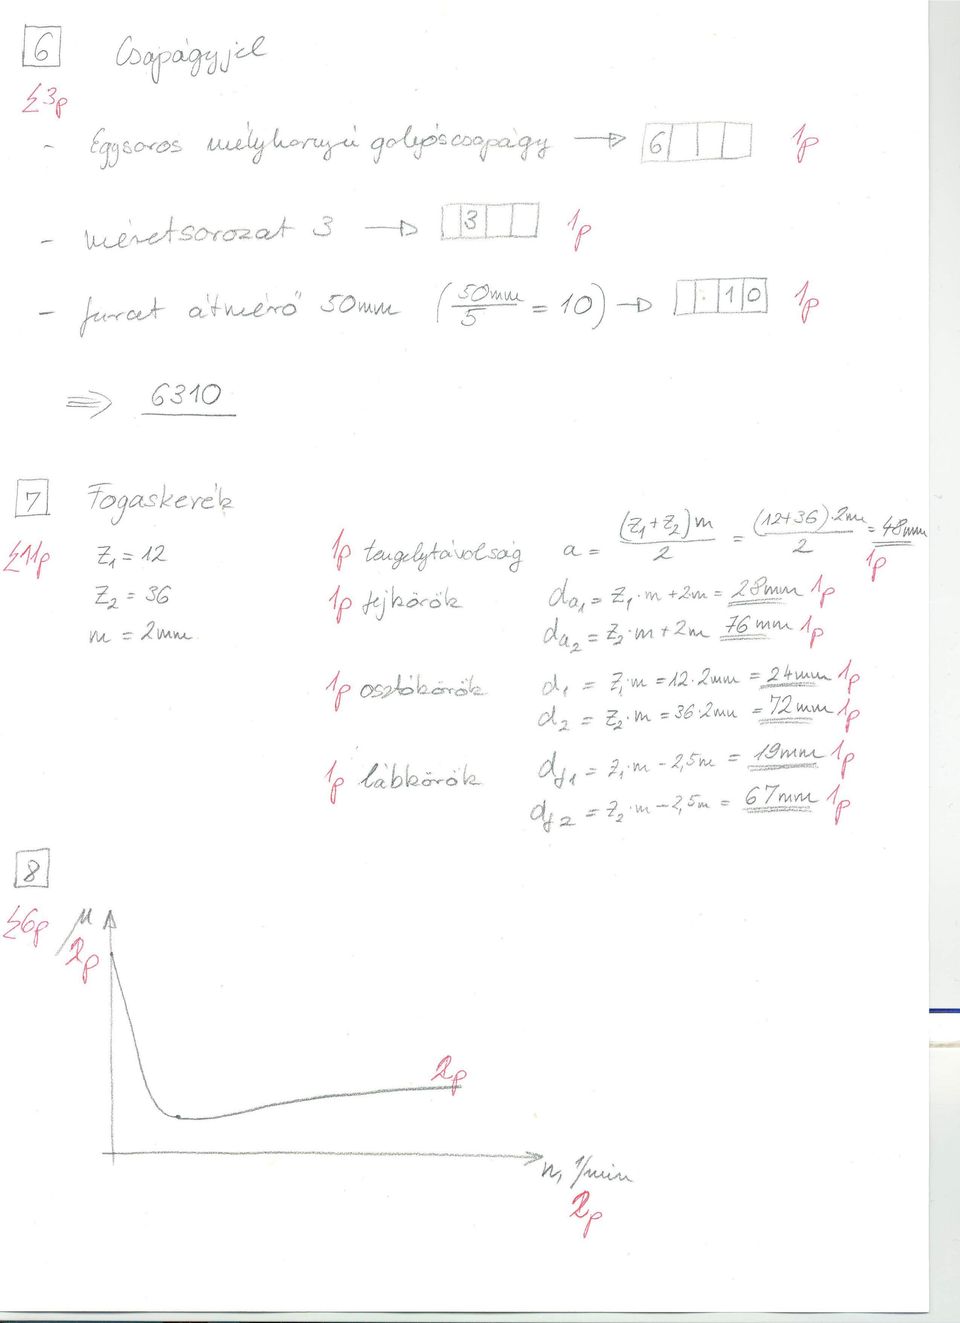 6 Csapágyjel
Σ3p
- Egysoros mélyhornyú golyóscsapágy → 6 1p
- méretsorozat 3 → 3 1p
- furat átmérő 50mm (50mm/5 = 10) → 10 1p
⇒ 6310
7 Fogaskerék
Σ11p Z₁ = 12 1p tengelytávolság a = (Z₁+Z₂)m/2 = (12+36)·2mm/2 = 48mm 1p
Z₂ = 36 1p fejkörök da₁ = Z₁·m +2m = 28mm 1p
m = 2mm da₂ = Z₂·m + 2m 76mm 1p
1p osztókörök d₁ = Z₁·m = 12·2mm = 24mm 1p
d₂ = Z₂·m = 36·2mm = 72mm 1p
1p lábkörök df1 = Z₁·m - 2,5m = 19mm 1p
df2 = Z₂·m - 2,5m = 67mm 1p
8
Σ6p μ
2p
2p
n, 1/min
2p